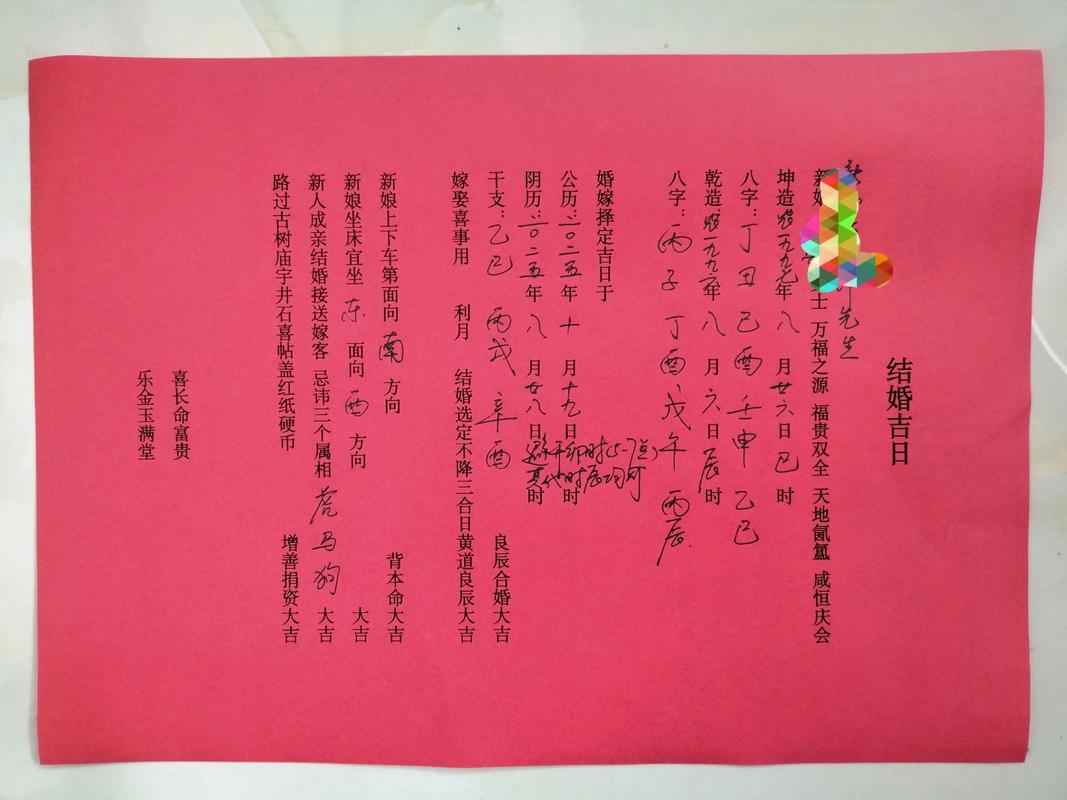 结婚吉日
先生
士 万福之源 福贵双全 天地氤氲 咸恒庆会
坤造 一九九七年 八 月 廿六 日 巳 时
八字：丁丑 己酉 壬申 乙巳
乾造 一九九六年 八 月 六 日 辰 时
八字：丙子 丁酉 戊午 丙辰
婚嫁择定吉日于
公历：二〇二五 年 十 月 十九 日 卯时(5-7点) 时
阴历：二〇二五 年 八 月 廿八 日 其他时辰均可 时
干支：乙巳 丙戌 辛酉 良辰合婚大吉
嫁娶喜事用 利月 结婚选定不降三合日黄道良辰大吉
新娘上下车第面向 南 方向 背本命大吉
新娘坐床宜坐 东 面向 酉 方向 大吉
新人成亲结婚接送嫁客 忌讳三个属相 虎 马 狗 大吉
路过古树庙宇井石喜帖盖红纸硬币 增善捐资大吉
喜长命富贵
乐金玉满堂